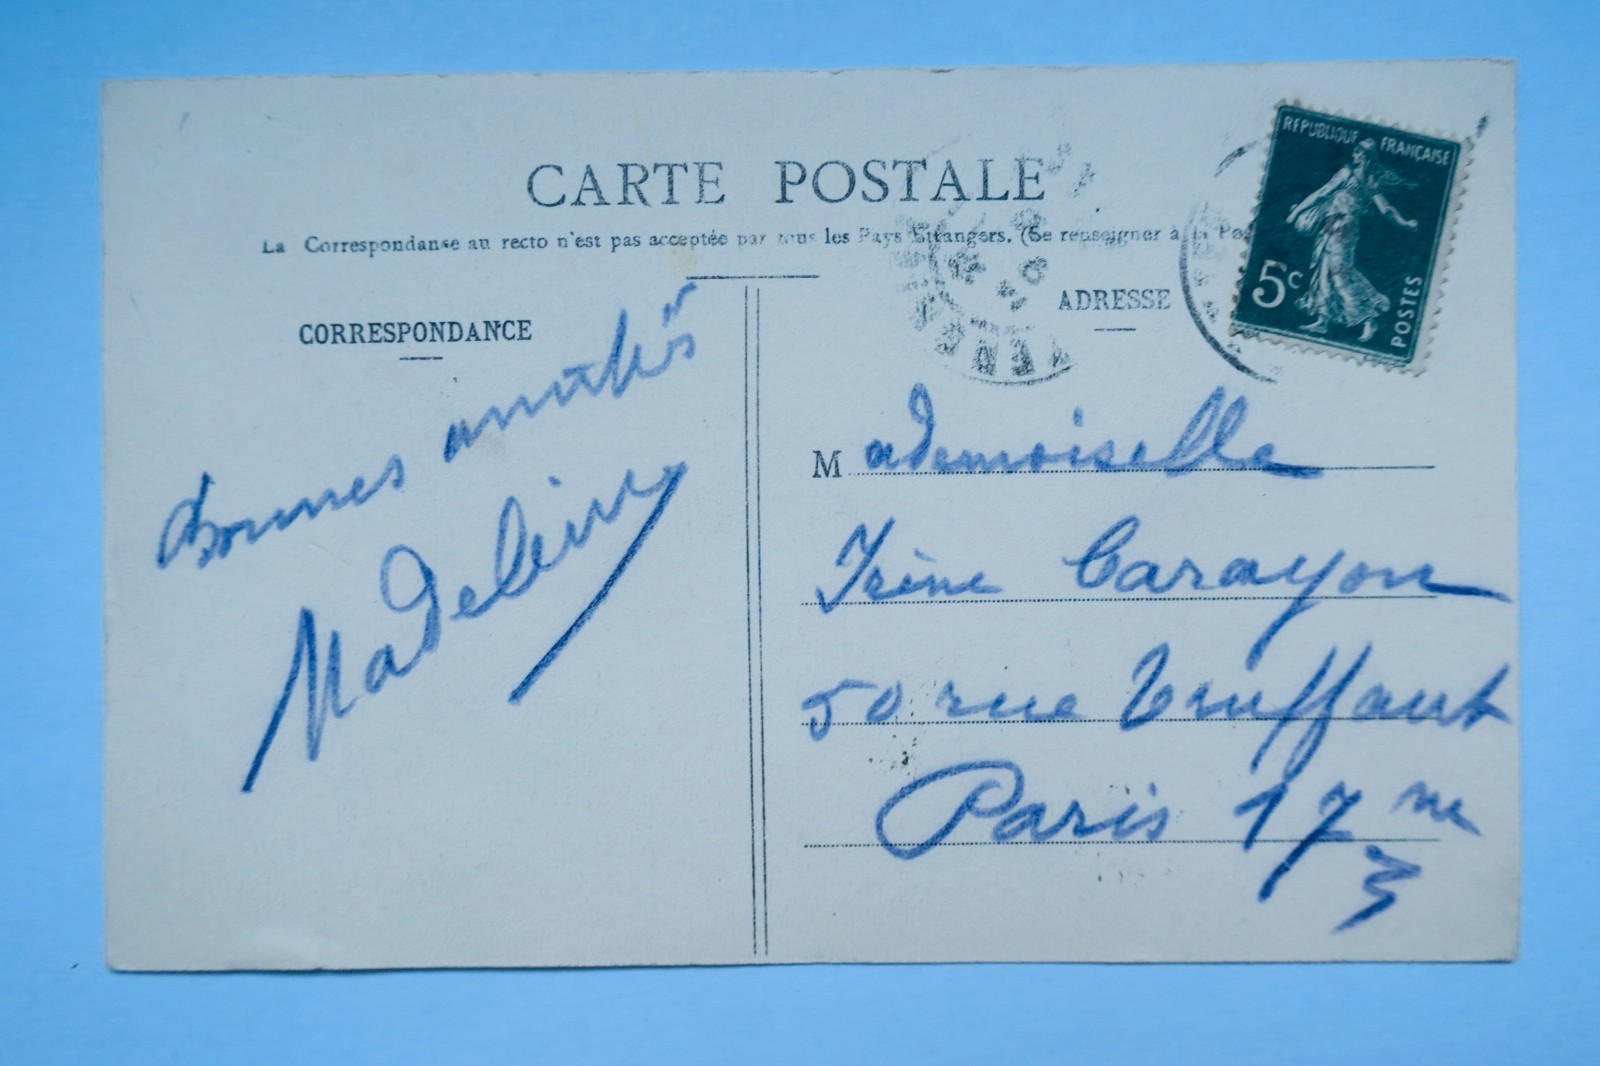 CARTE POSTALE
La Correspondanse au recto n'est pas acceptée par tous les Pays Etrangers. (Se renseigner à la Po
REPUBLIQUE FRANÇAISE
5c
POSTES
CORRESPONDANCE
Bonnes amitiés
Madeleine
ADRESSE
Mademoiselle
Irène Carayon
50 rue Truffaut
Paris 17me